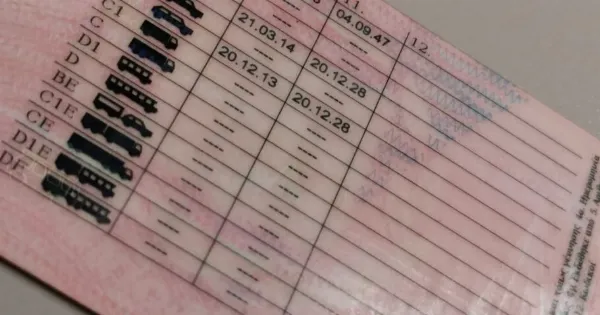 11. 12.
04.09.47
---- ----
C1 21.03.14 20.12.28
C 20.12.13 20.12.28
D1 ---- ----
D ---- ----
BE ---- ----
C1E ---- ----
CE ---- ----
D1E ---- ----
DE ---- ----